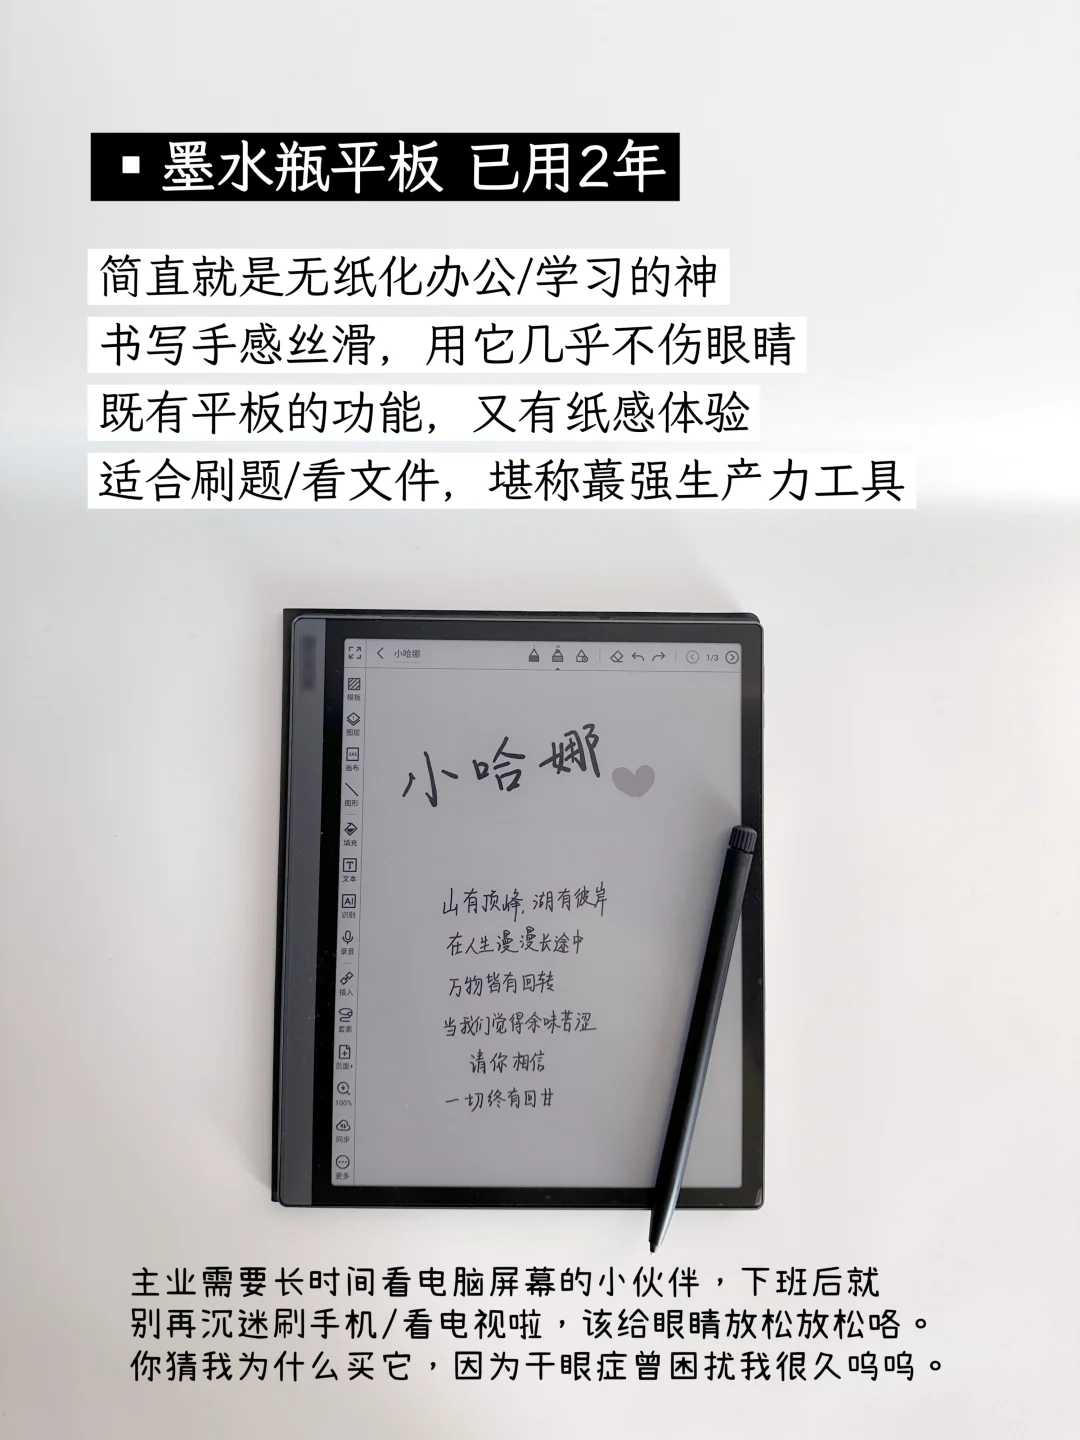 ▪ 墨水瓶平板 已用2年
简直就是无纸化办公/学习的神
书写手感丝滑，用它几乎不伤眼睛
既有平板的功能，又有纸感体验
适合刷题/看文件，堪称蕞强生产力工具
小哈娜
1/3
模板
图层
画布
图形
填充
文本
AI
识别
录音
插入
套索
页面+
100%
同步
更多
小哈娜
山有顶峰，湖有彼岸
在人生漫漫长途中
万物皆有回转
当我们觉得余味苦涩
请你相信
一切终有回甘
主业需要长时间看电脑屏幕的小伙伴，下班后就
别再沉迷刷手机/看电视啦，该给眼睛放松放松咯。
你猜我为什么买它，因为干眼症曾困扰我很久呜呜。